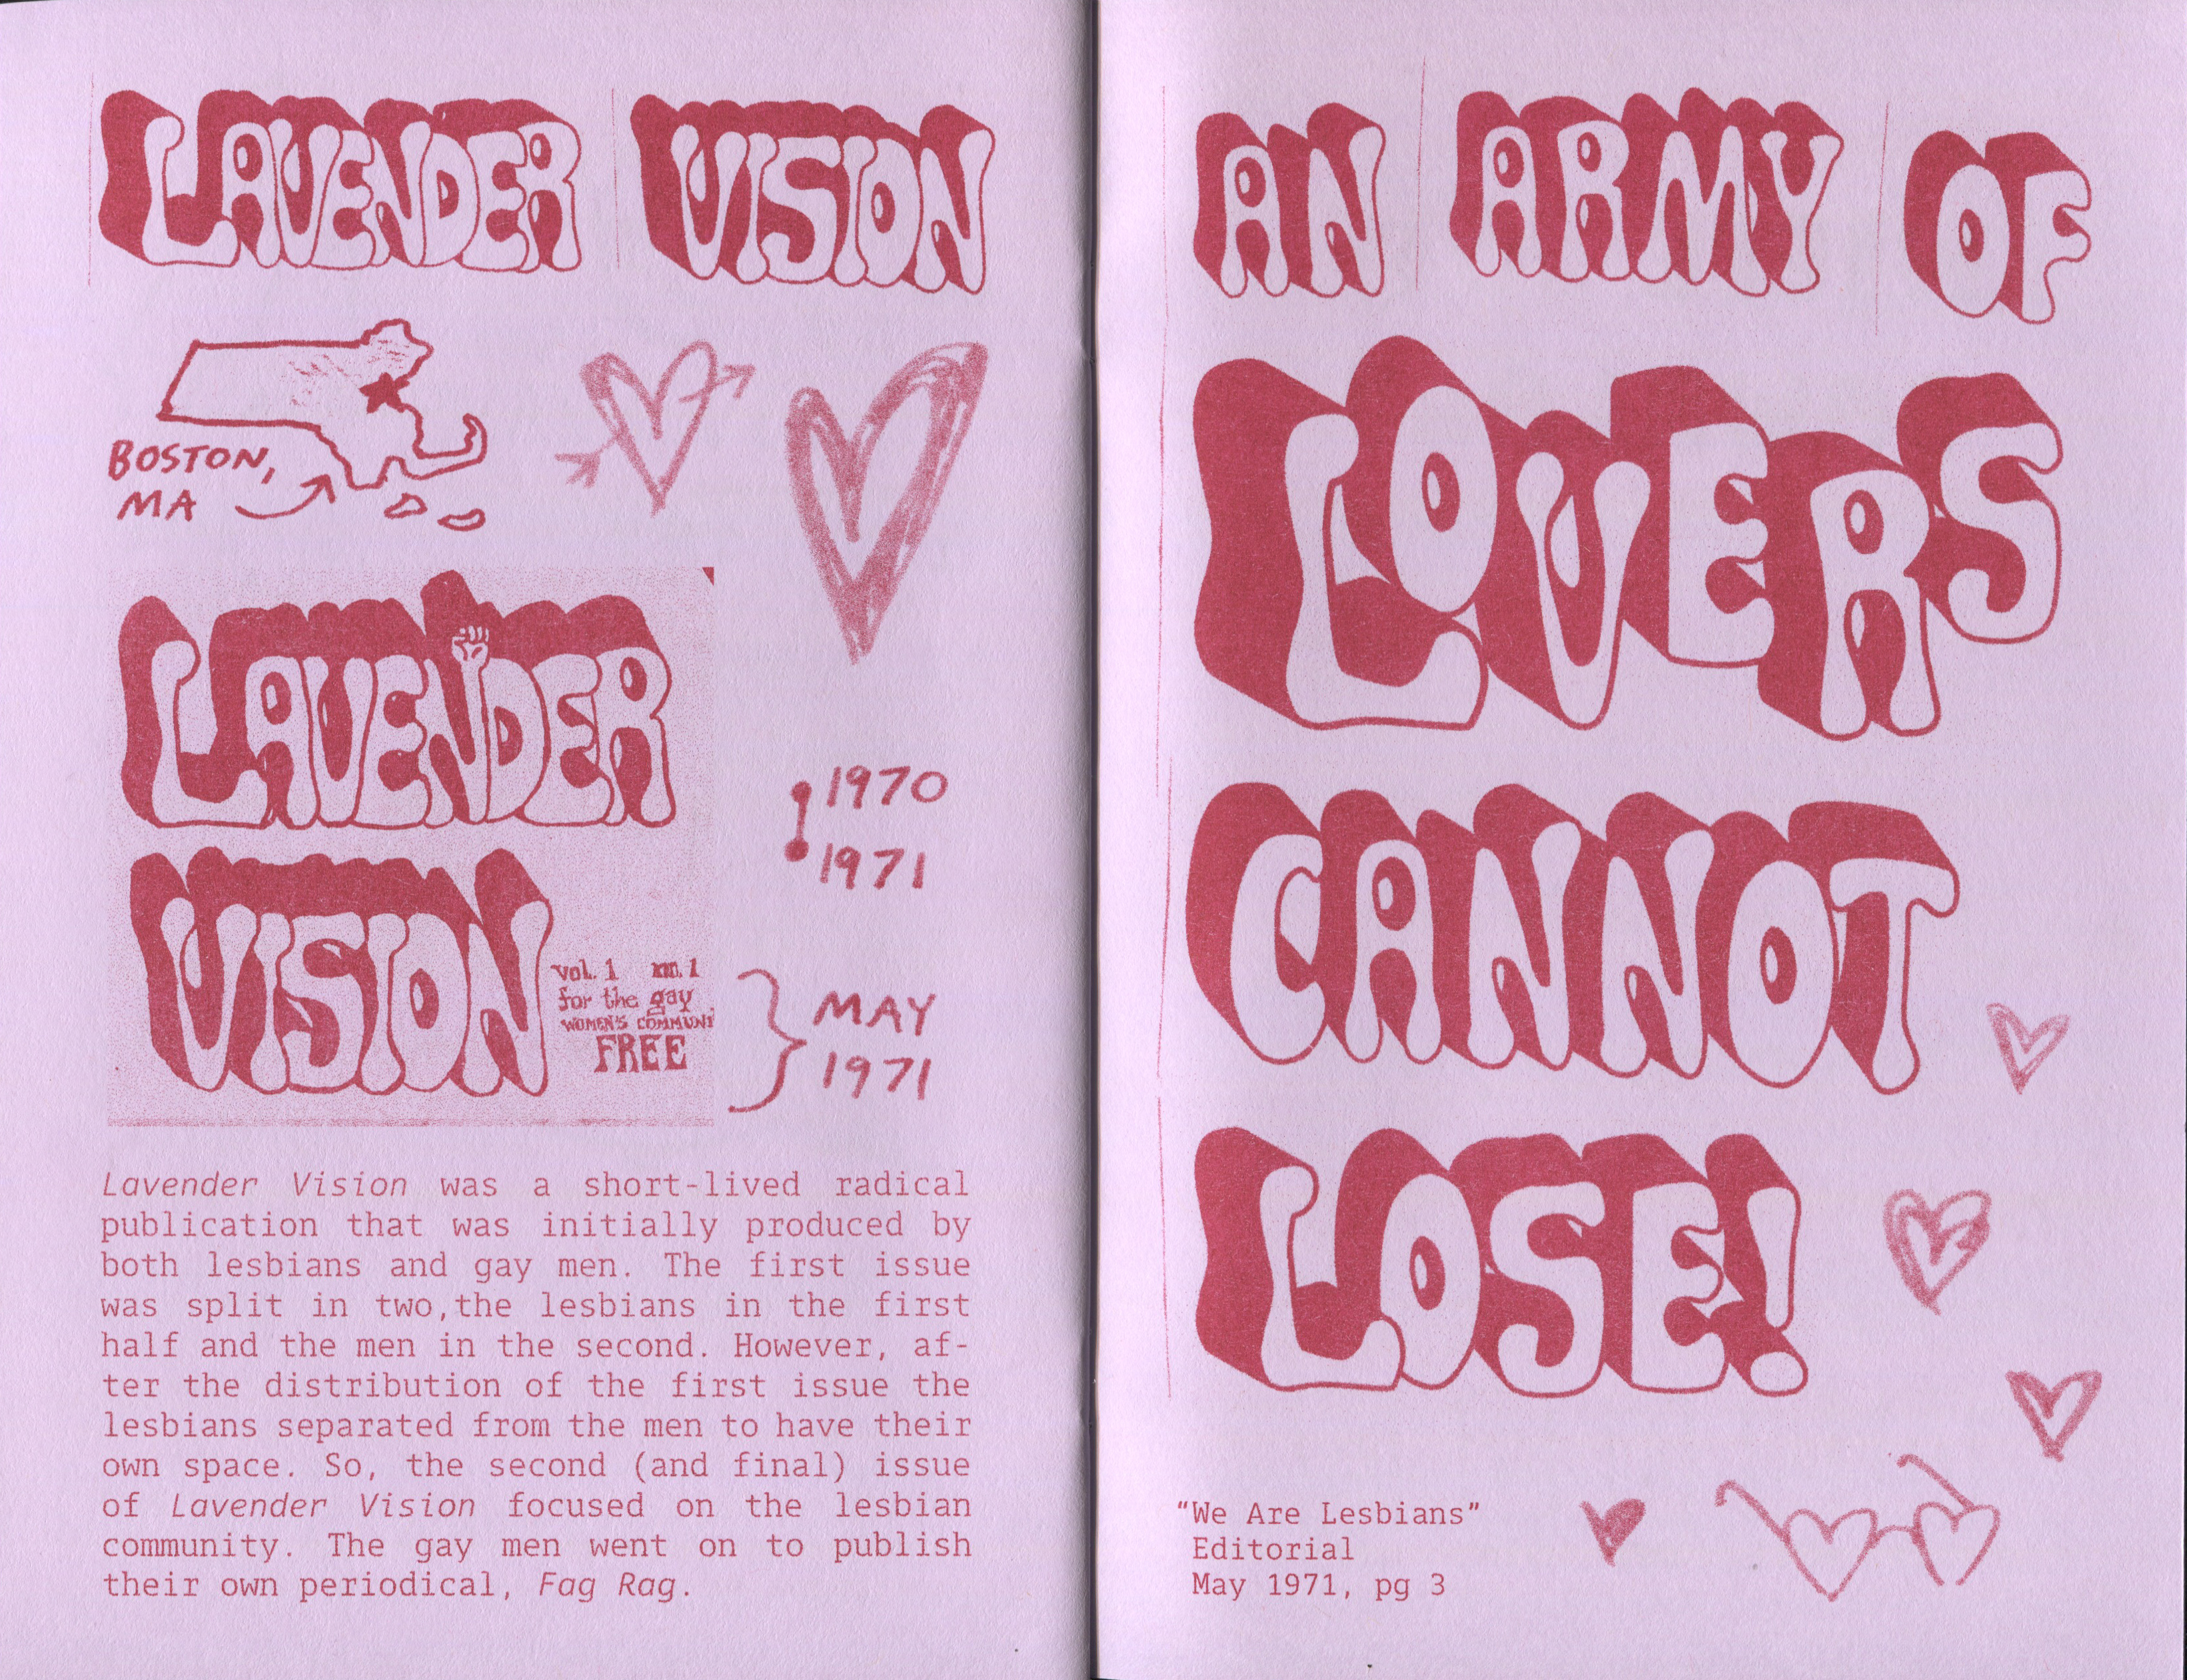 LAVENDER VISION
BOSTON,
MA
LAVENDER
VISION
vol. 1 no. 1
for the gay
WOMEN'S COMMUNI
FREE
1970
1971
MAY
1971
Lavender Vision was a short-lived radical
publication that was initially produced by
both lesbians and gay men. The first issue
was split in two,the lesbians in the first
half and the men in the second. However, af-
ter the distribution of the first issue the
lesbians separated from the men to have their
own space. So, the second (and final) issue
of Lavender Vision focused on the lesbian
community. The gay men went on to publish
their own periodical, Fag Rag.
AN ARMY OF
LOVERS
CANNOT
LOSE!
“We Are Lesbians”
Editorial
May 1971, pg 3